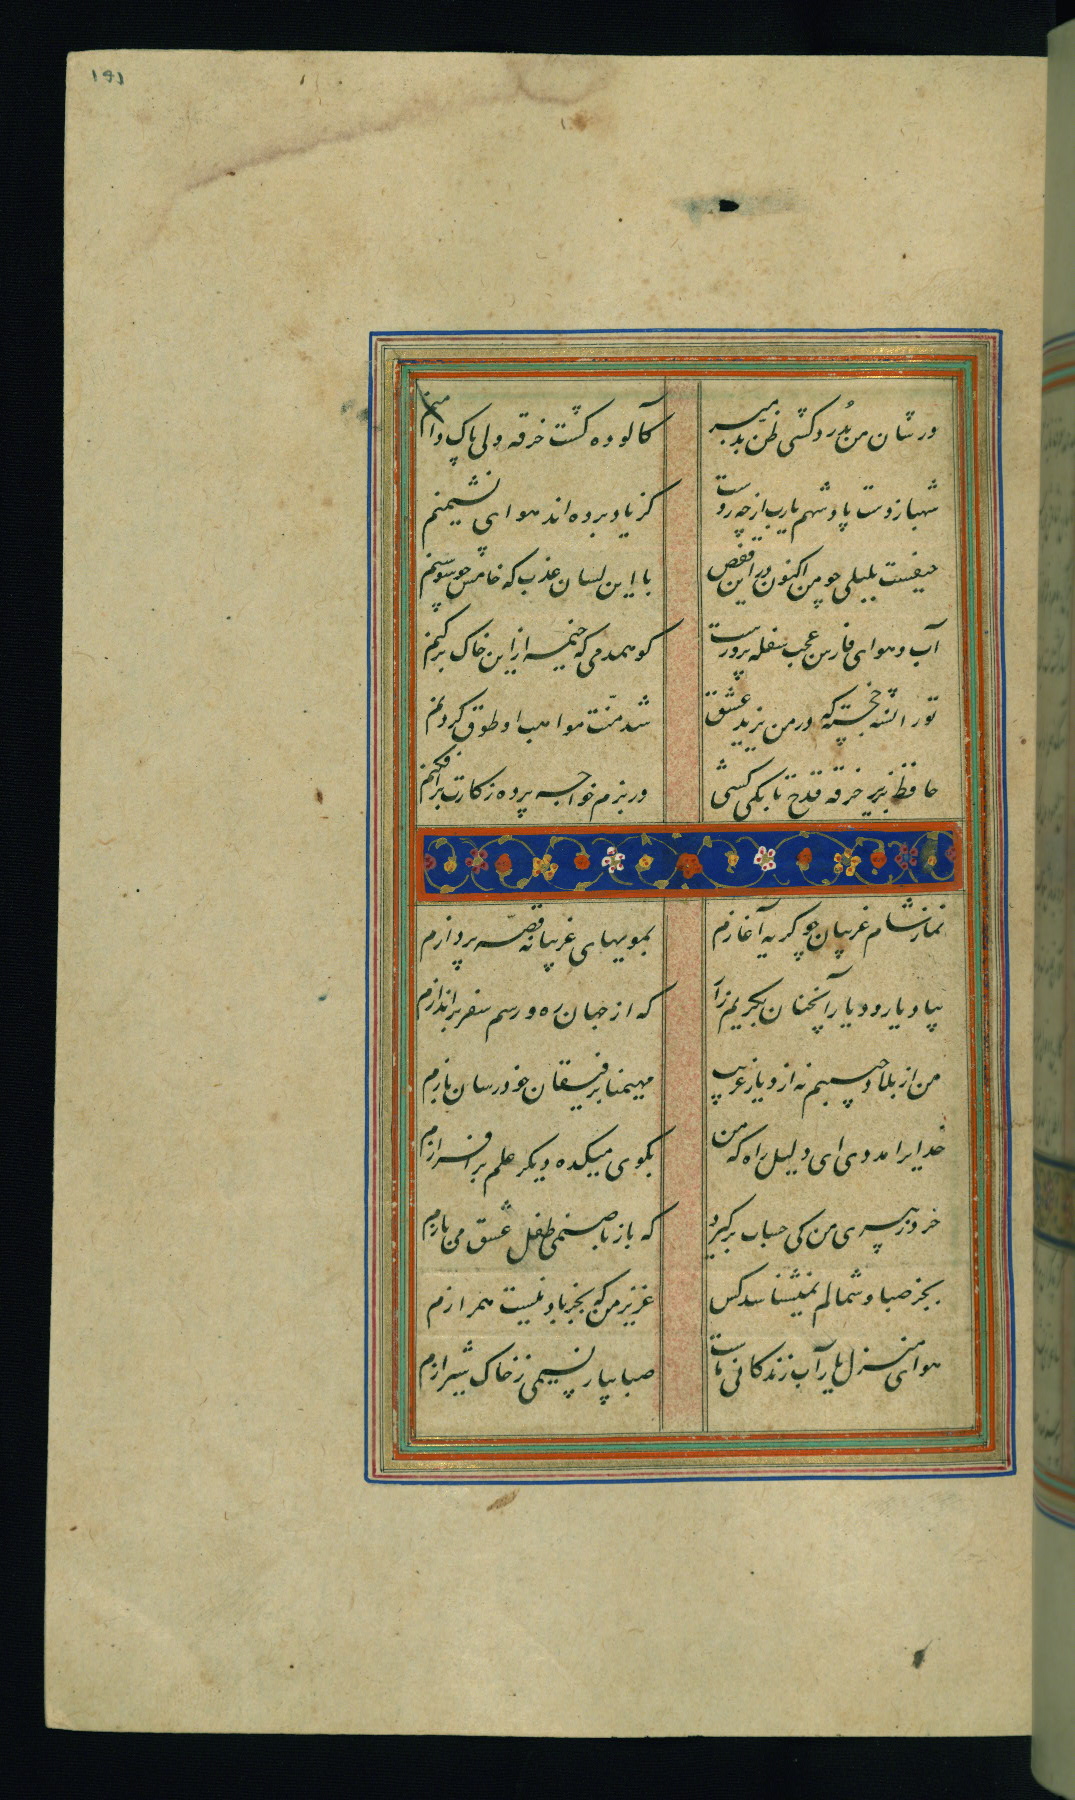 ۱۹۱
در شان من بدردکشی ظن بد مبر
کآلوده گشت خرقه ولی پاک دامنم
شهباز دست پادشهم یارب از چه روست
کز یاد برده اند هوای نشیمنم
حیفست بلبلی چو من اکنون درین قفص
با این لسان عذب که خامش چو سوسنم
آب و هوای فارس عجب سفله پرورست
کو همدمی که خیمه ازین خاک برکنم
تورانشه خجسته که در من یزید عشق
شد منّت مواهب او طوق گردنم
حافظ بزیر خرقه قدح تا بکی کشی
در بزم خواجه پرده ز کارت برافکنم
نماز شام غریبان چو گریه آغازم
بمویهای غریبانه قصّه پردازم
بیاد یار و دیار آنچنان بگریم زار
که از جهان ره و رسم سفر براندازم
من از بلاد حبیبم نه از دیار غریب
مهیمنا برفیقان خود رسان بازم
خدایرا مددی ای دلیل راه که من
بکوی میکده دیگر علم برافرازم
خرد ز پیری من کی حساب برگیرد
که باز با صنمی طفل عشق می بازم
بجز صبا و شمالم نمیشناسد کس
عزیز من که بجز باد نیست همرازم
هوای منزل یار آب زندگانی ماست
صبا بیار نسیمی ز خاک شیرازم